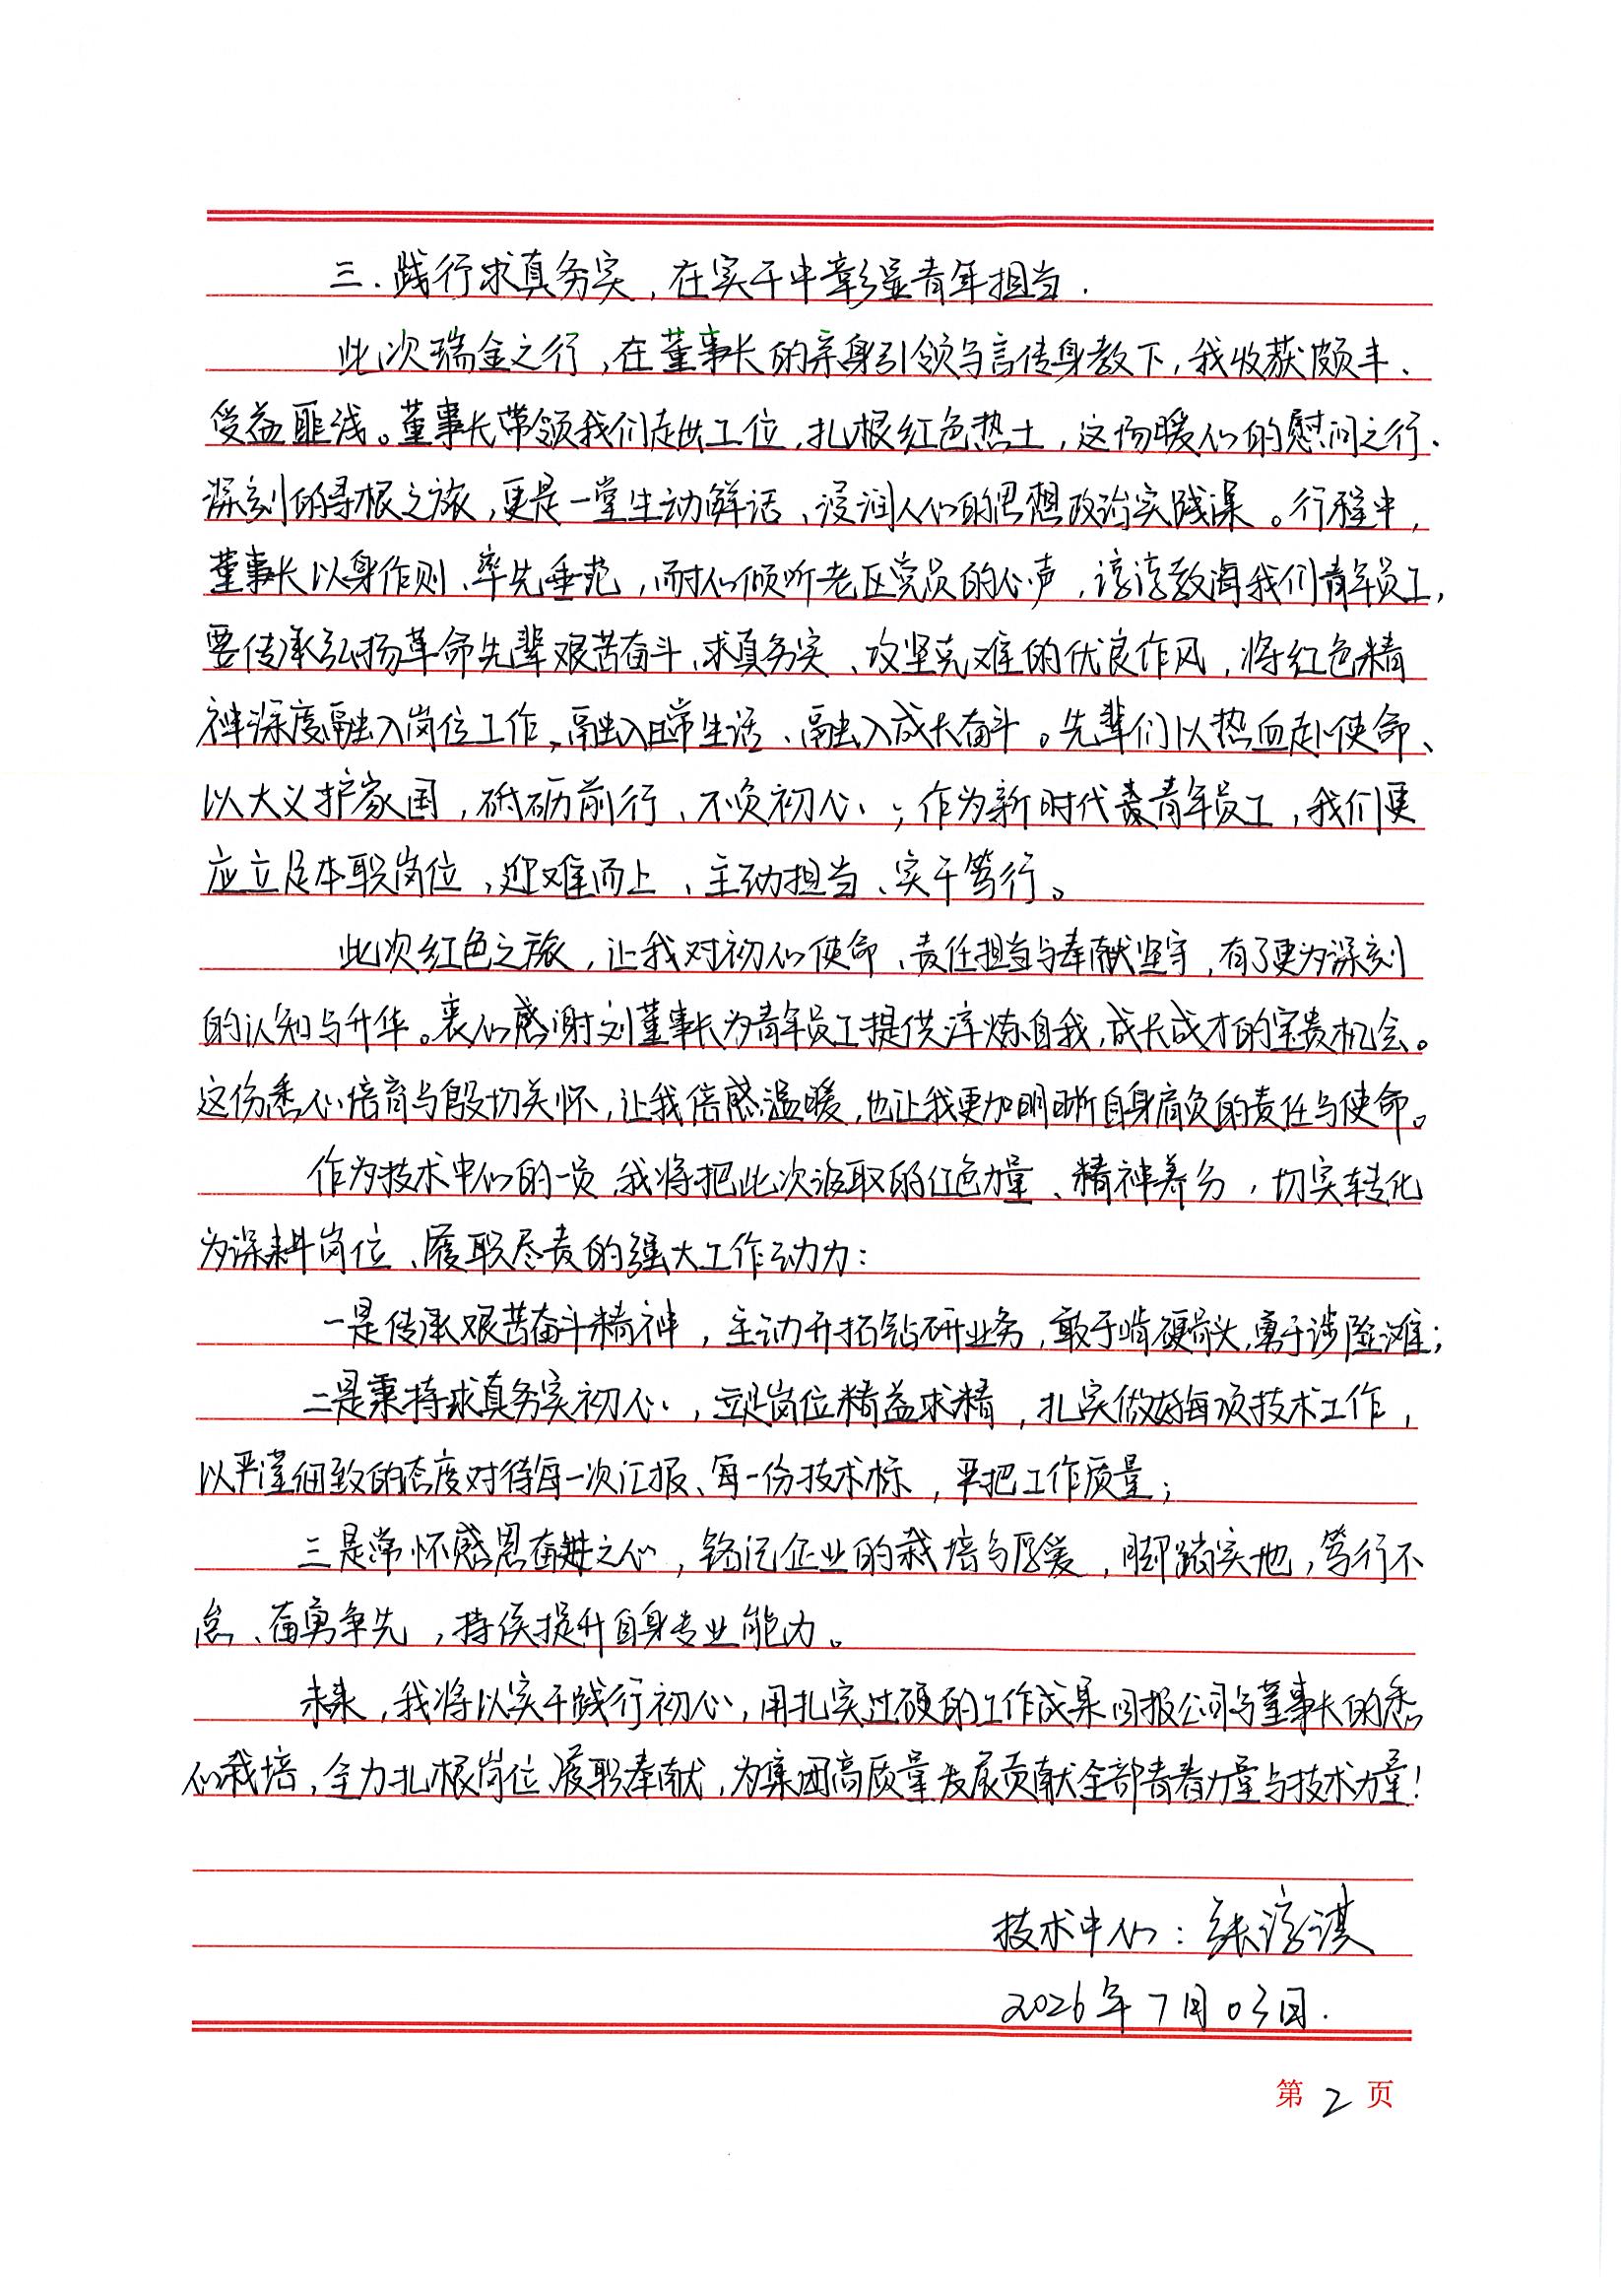 三.践行求真务实,在实干中彰显青年担当.
此次瑞金之行,在董事长的亲身引领与言传身教下,我收获颇丰、
受益匪浅。董事长带领我们走出工位,扎根红色热土,这场暖心的慰问之行、
深刻的寻根之旅,更是一堂生动鲜活、浸润人心的思想政治实践课。行程中,
董事长以身作则、率先垂范,耐心倾听老区党员的心声,谆谆教诲我们青年员工,
要传承弘扬革命先辈艰苦奋斗、求真务实、攻坚克难的优良作风,将红色精
神深度融入岗位工作、融入日常生活、融入成长奋斗。先辈们以热血赴使命、
以大义护家国,砥砺前行、不负初心;作为新时代青年员工,我们更
应立足本职岗位,迎难而上、主动担当、实干笃行。
此次红色之旅,让我对初心使命、责任担当与奉献坚守,有了更为深刻
的认知与升华。衷心感谢刘董事长为青年员工提供淬炼自我,成长成才的宝贵机会。
这份悉心培育与殷切关怀,让我倍感温暖,也让我更加明晰自身肩负的责任与使命。
作为技术中心的一员,我将把此次汲取的红色力量、精神养分,切实转化
为深耕岗位、履职尽责的强大工作动力:
一是传承艰苦奋斗精神,主动开拓钻研业务,敢于啃硬骨头,勇于涉险滩;
二是秉持求真务实初心,立足岗位精益求精,扎实做好每项技术工作,
以严谨细致的态度对待每一次汇报、每一份技术标,严把工作质量;
三是常怀感恩奋进之心,铭记企业的栽培与厚爱,脚踏实地,笃行不
怠、奋勇争先,持续提升自身专业能力。
未来,我将以实干践行初心,用扎实过硬的工作成果回报公司与董事长的悉
心栽培,全力扎根岗位、履职奉献,为集团高质量发展贡献全部青春力量与技术力量!
技术中心:张淳淇
2026年7月03日.
第2页